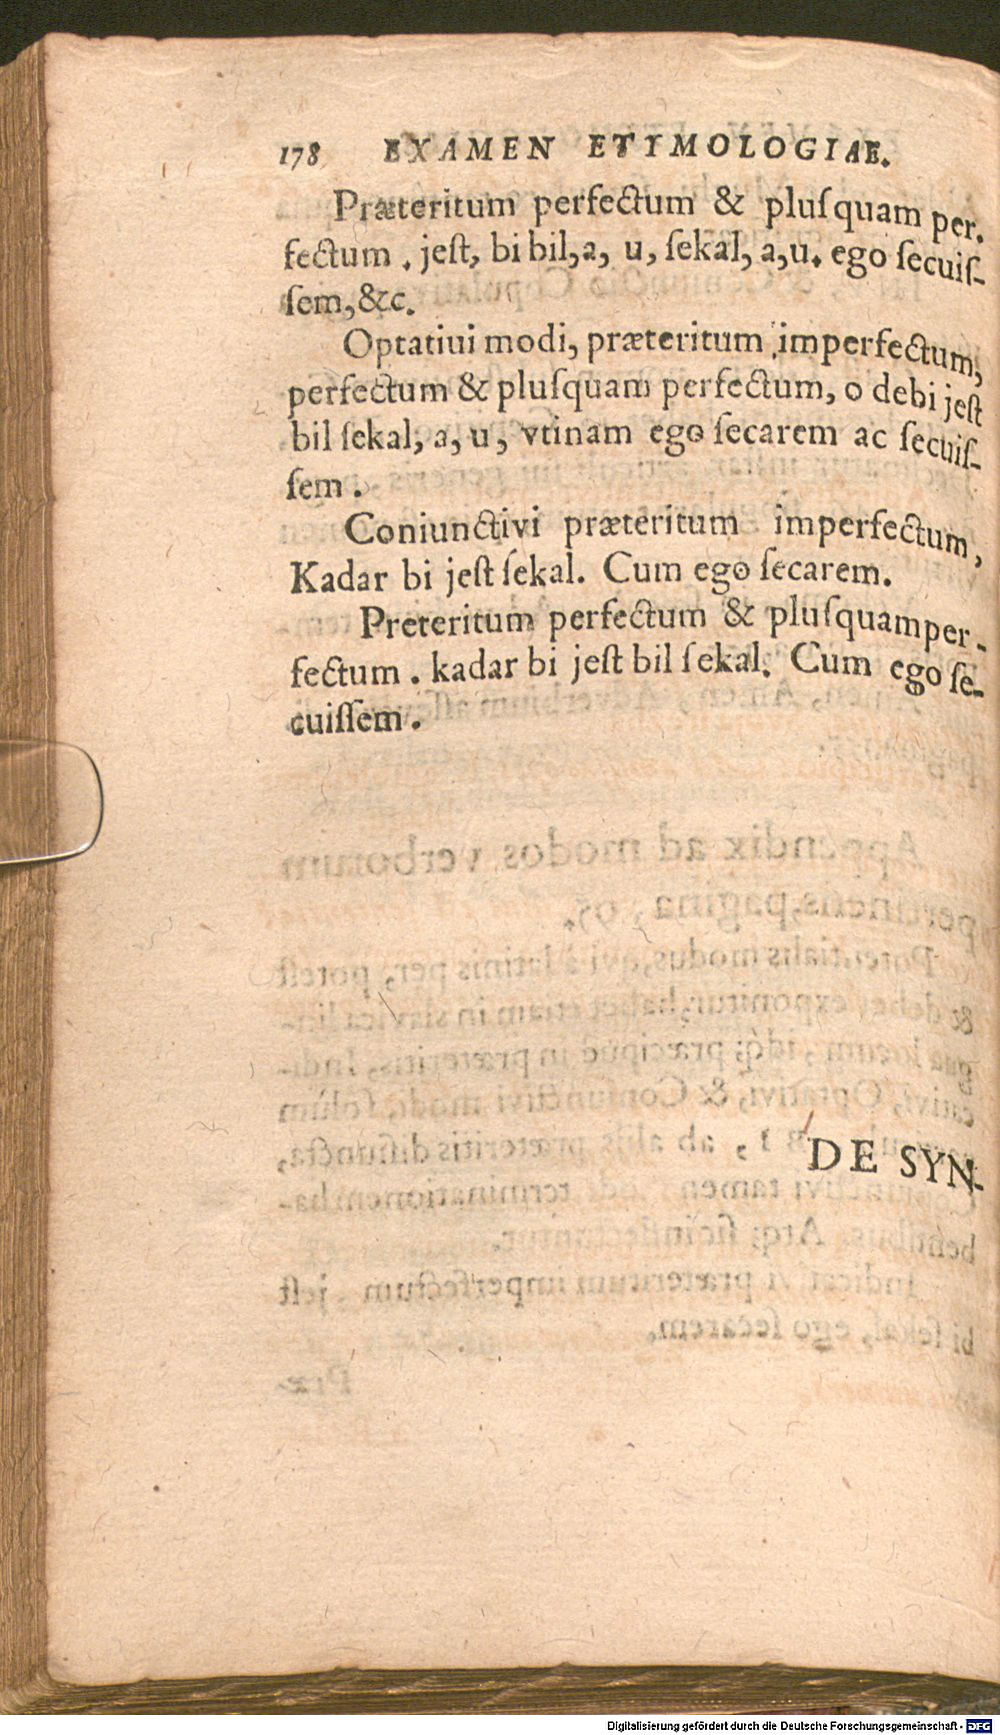 178 EXAMEN ETYMOLOGIAE.
Præteritum perfectum & pluſquam per.
fectum . jeſt, bi bil,a, u, ſekal, a,u. ego ſecuiſ-
ſem,&c.
Optatiui modi, præteritum imperfectum,
perfectum & pluſquam perfectum, o debi jeſt
bil ſekal, a, u, vtinam ego ſecarem ac ſecuiſ-
ſem .
Coniunctivi præteritum imperfectum,
Kadar bi jeſt ſekal. Cum ego ſecarem.
Preteritum perfectum & pluſquamper-
fectum . kadar bi jeſt bil ſekal. Cum ego ſe-
cuiſſem .
DE SYN-
Digitalisierung gefördert durch die Deutsche Forschungsgemeinschaft - DFG